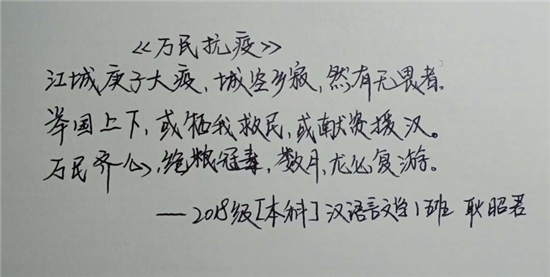 《万民抗疫》
江城庚子大疫,城空乡寂,然有无畏者。
举国上下,或牺我救民,或献资援汉。
万民齐心,冠毒,数月,复游。
——2018级[本科]汉语言文学1班 耿昭君